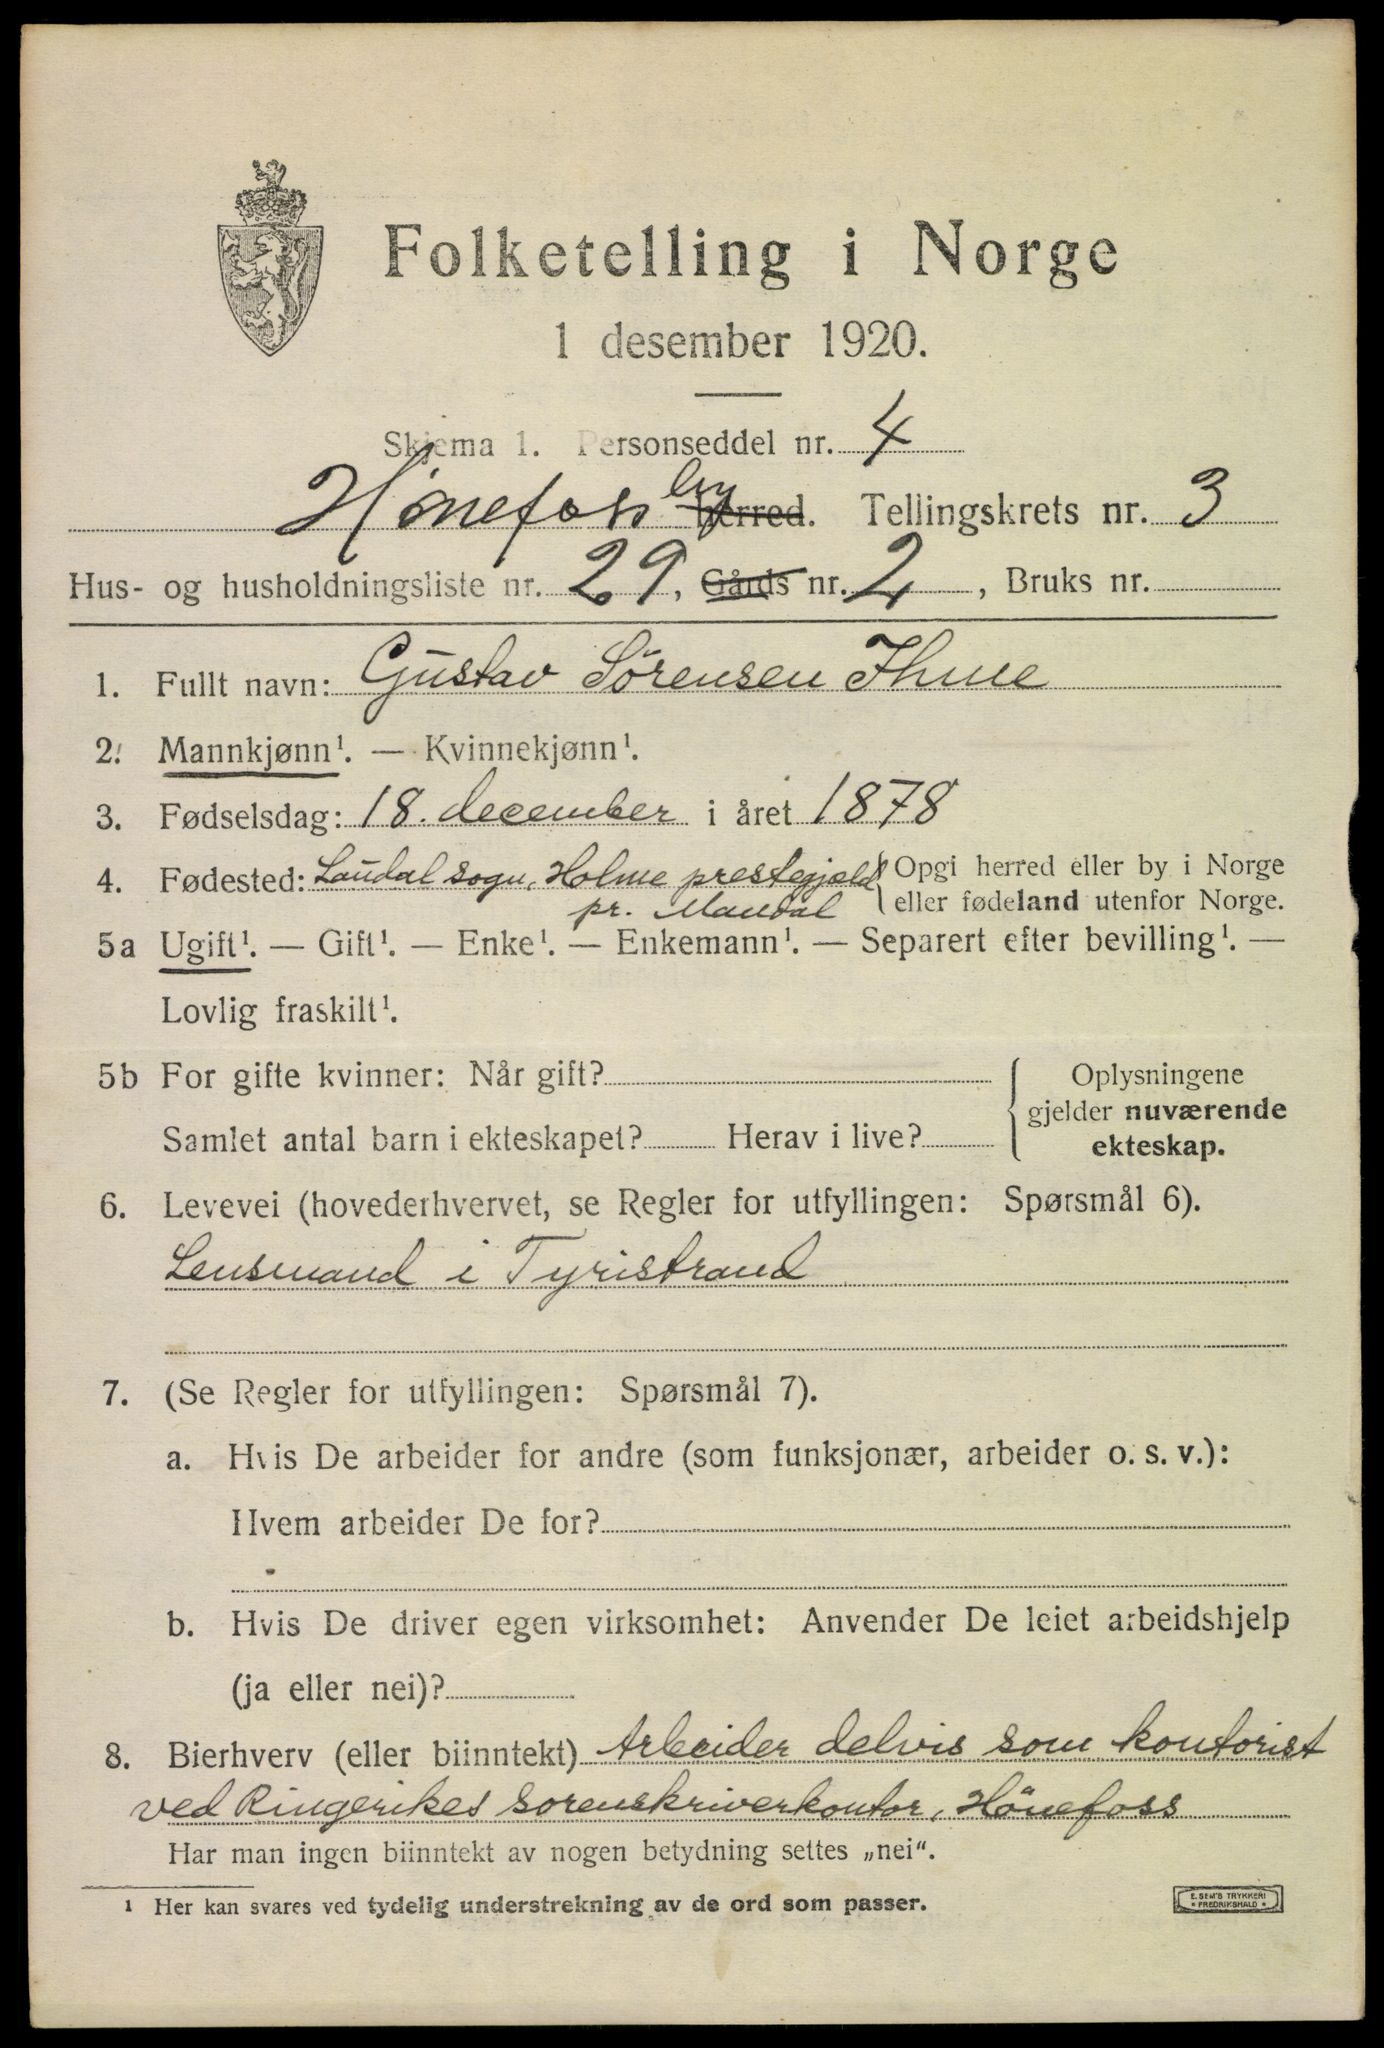 Folketelling i Norge
1 desember 1920.
Skjema 1. Personseddel nr. 4
Hönefoss by herred. Tellingskrets nr. 3
Hus- og husholdningsliste nr. 29, Gårds nr. 2, Bruks nr.
1. Fullt navn: Gustav Sörensen Ihme
2. Mannkjønn¹. — Kvinnekjønn¹.
3. Fødselsdag: 18. december i året 1878
4. Fødested: Laudal sogn, Holme prestegjæld { Opgi herred eller by i Norge
pr. Mandal eller fødeland utenfor Norge.
5a Ugift¹. — Gift¹. — Enke¹. — Enkemann¹. — Separert efter bevilling¹. —
Lovlig fraskilt¹.
5b For gifte kvinner: Når gift? { Oplysningene
gjelder nuværende
Samlet antal barn i ekteskapet? Herav i live? ekteskap.
6. Levevei (hovederhvervet, se Regler for utfyllingen: Spørsmål 6).
Lensmand i Tyristrand
7. (Se Regler for utfyllingen: Spørsmål 7).
a. Hvis De arbeider for andre (som funksjonær, arbeider o. s. v.):
Hvem arbeider De for?
b. Hvis De driver egen virksomhet: Anvender De leiet arbeidshjelp
(ja eller nei)?
8. Bierhverv (eller biinntekt) Arbeider delvis som kontorist
ved Ringerikes sorenskriverkontor, Hönefoss
Har man ingen biinntekt av nogen betydning settes „nei“.
¹ Her kan svares ved tydelig understrekning av de ord som passer.
E. SEM'S TRYKKERI
* FREDRIKSHALD *